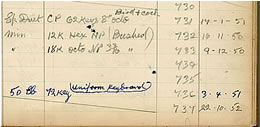 730
Ep. Duet C.P. 62 Key 8" octs 731 14-1-51
Min 12K Hex NP Bushed) 732 10-11-50
" 18K octo NP 3⅞ " 733 9-12-50
734
735
50 Eb 72 Key (uniform keyboard) 736 3-4-51
737 22-10-52